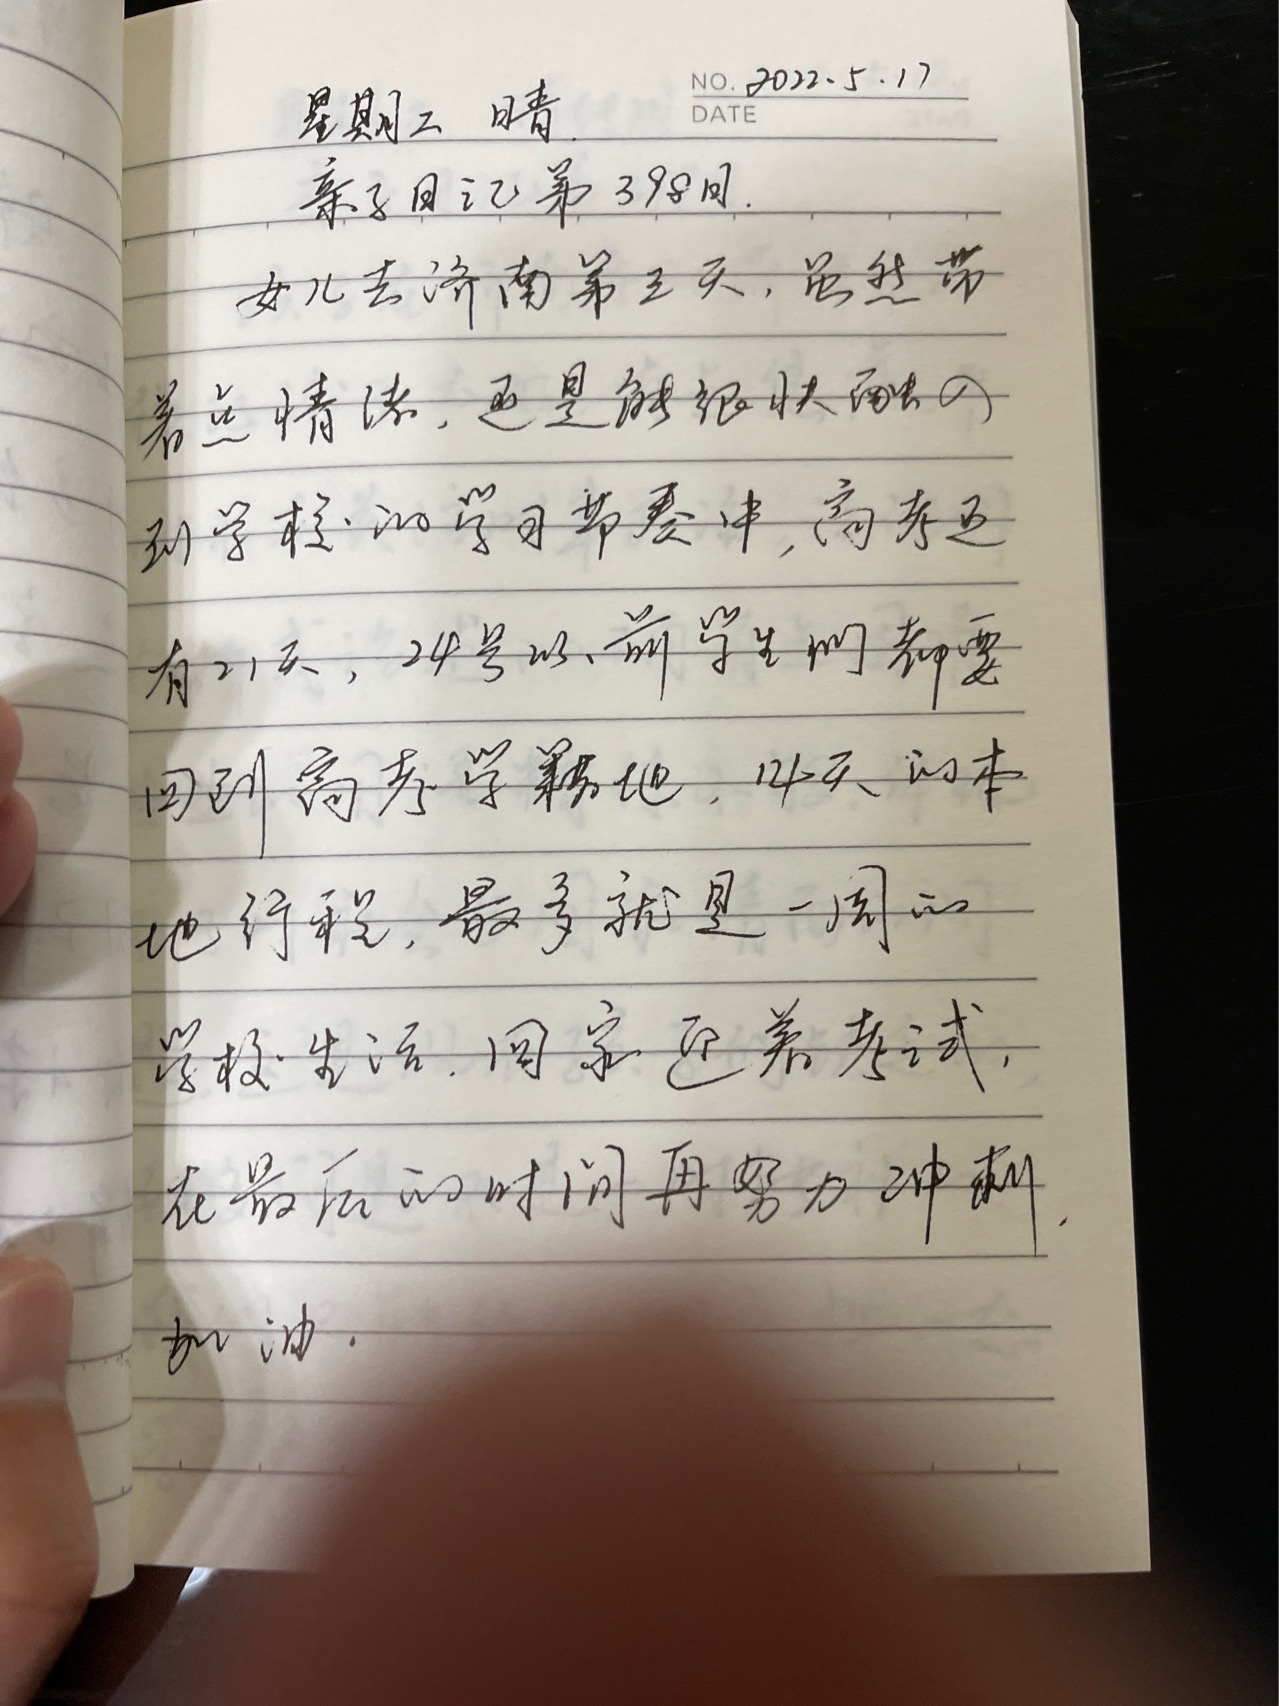 NO. 2022.5.17
DATE
星期二 晴.
亲子日记第398回.
女儿去济南第三天,虽然带
着点情绪,还是能很快融入
到学校的学习节奏中,高考还
有21天,24号以前学生们都要
回到高考学籍地,14天的本
地行程,最多就是一周的
学校生活.回家迎着考试,
在最后的时间再努力冲刺,
加油.